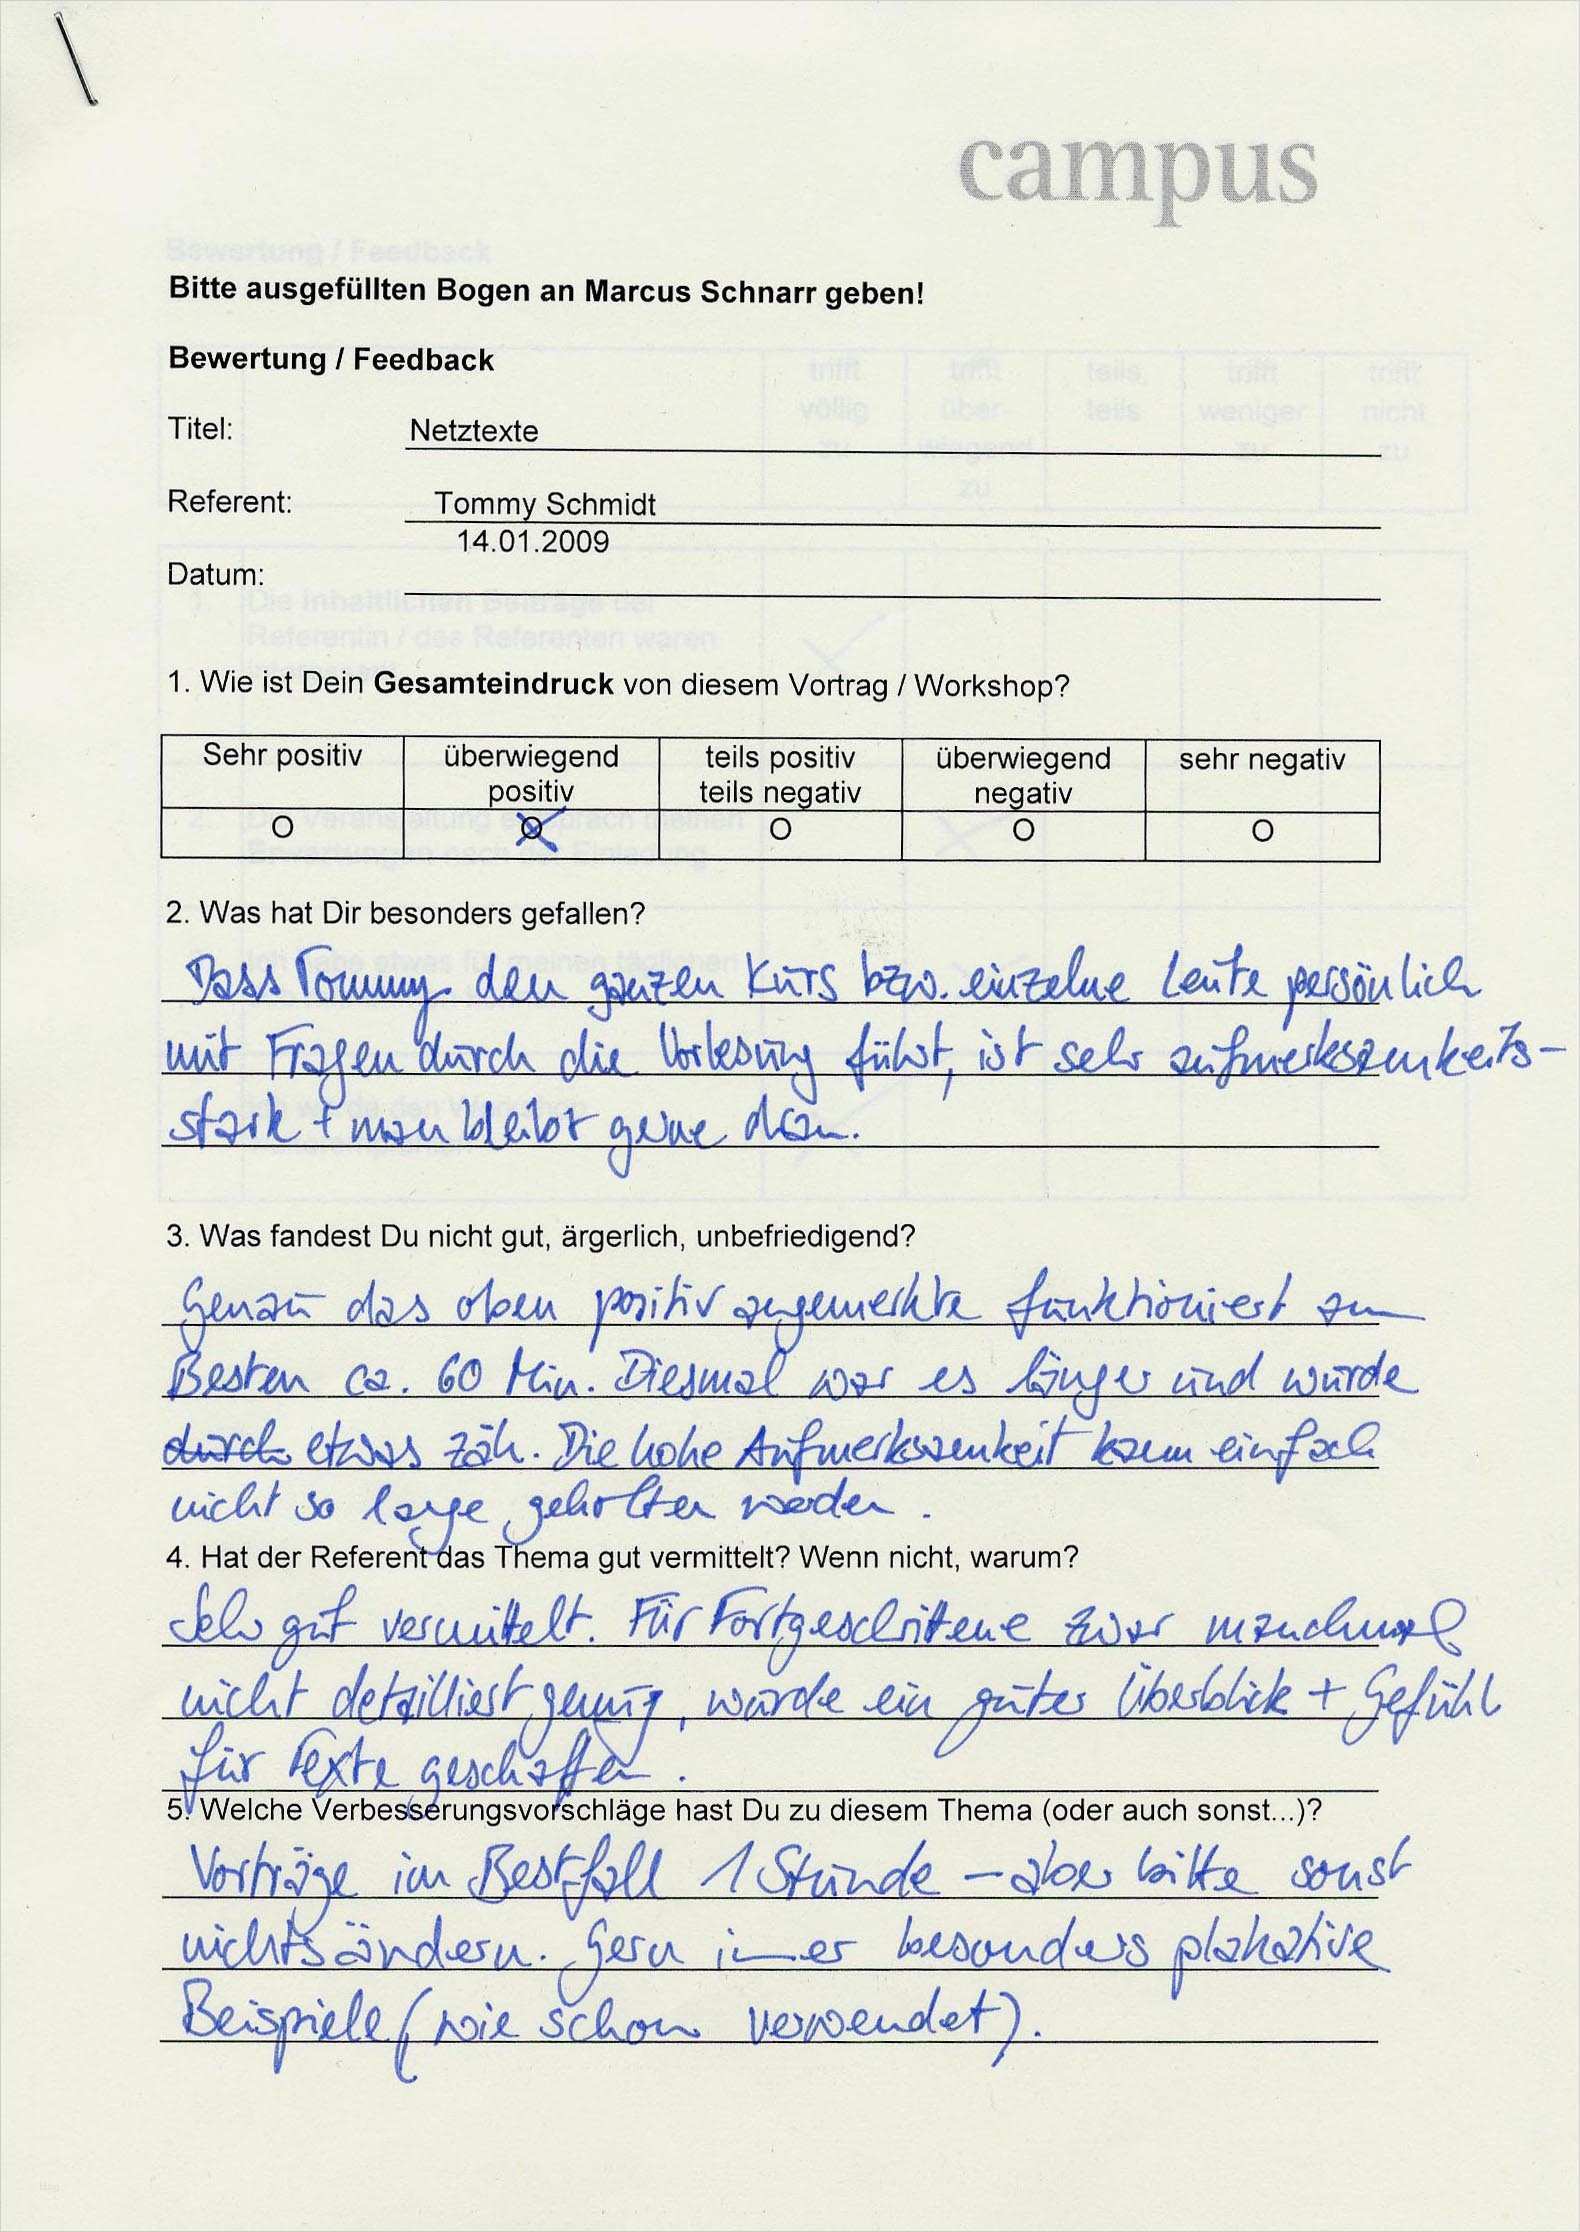 campus
Bitte ausgefüllten Bogen an Marcus Schnarr geben!
Bewertung / Feedback
Titel: Netztexte
Referent: Tommy Schmidt
14.01.2009
Datum:
1. Wie ist Dein Gesamteindruck von diesem Vortrag / Workshop?
Sehr positiv überwiegend teils positiv überwiegend sehr negativ
positiv teils negativ negativ
O O O O O
2. Was hat Dir besonders gefallen?
Dass Tommy den ganzen Kurs bzw. einzelne Leute persönlich
mit Fragen durch die Vorlesung führt, ist sehr aufmerksamkeits-
stark + man bleibt gerne dran.
3. Was fandest Du nicht gut, ärgerlich, unbefriedigend?
Genau das oben positiv angemerkte funktioniert am
Besten ca. 60 Min. Diesmal war es länger und wurde
durch etwas zäh. Die hohe Aufmerksamkeit kann einfach
nicht so lange gehalten werden.
4. Hat der Referent das Thema gut vermittelt? Wenn nicht, warum?
Sehr gut vermittelt. Für Fortgeschrittene zwar manchmal
nicht detailliert genug, wurde ein guter Überblick + Gefühl
für Texte geschaffen.
5. Welche Verbesserungsvorschläge hast Du zu diesem Thema (oder auch sonst...)?
Vorträge im Bestfall 1 Stunde – aber bitte sonst
nichts ändern. Gern immer besonders plakative
Beispiele (wie schon verwendet).